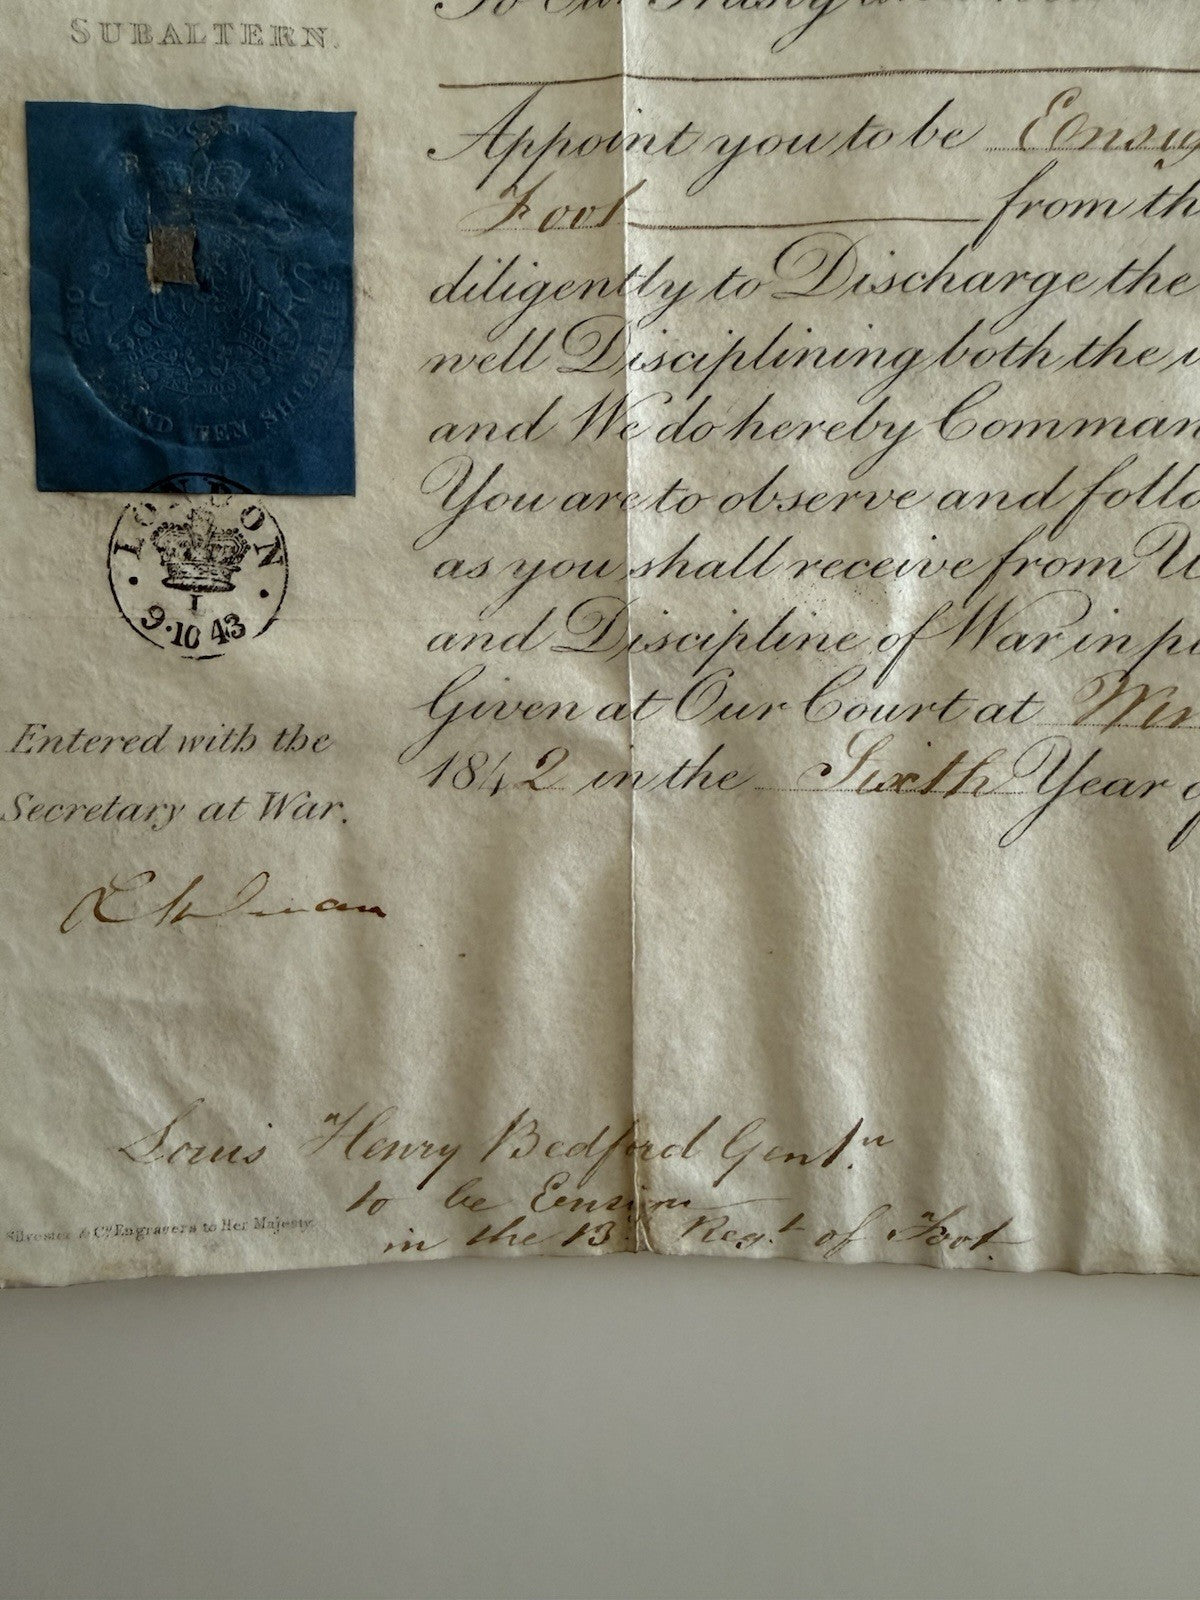 SUBALTERN.
Appoint you to be Ensig
Foot from th
diligently to Discharge the
well Disciplining both the
and We do hereby Comman
You are to observe and follo
as you shall receive from U
and Discipline of War in
Given at Our Court at Win
1842 in the Sixth Year
AND TEN SHILLINGS
LONDON
1
9·10 43
Entered with the
Secretary at War.
Louis Henry Bedford Gent.n
to be Ensign
in the 13th Regt of Foot.
Silvester & Co. Engravers to Her Majesty.